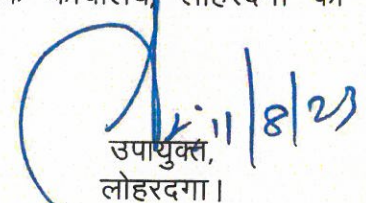 कार्यालय, लोहरदगा को
11/8/23
उपायुक्त,
लोहरदगा।